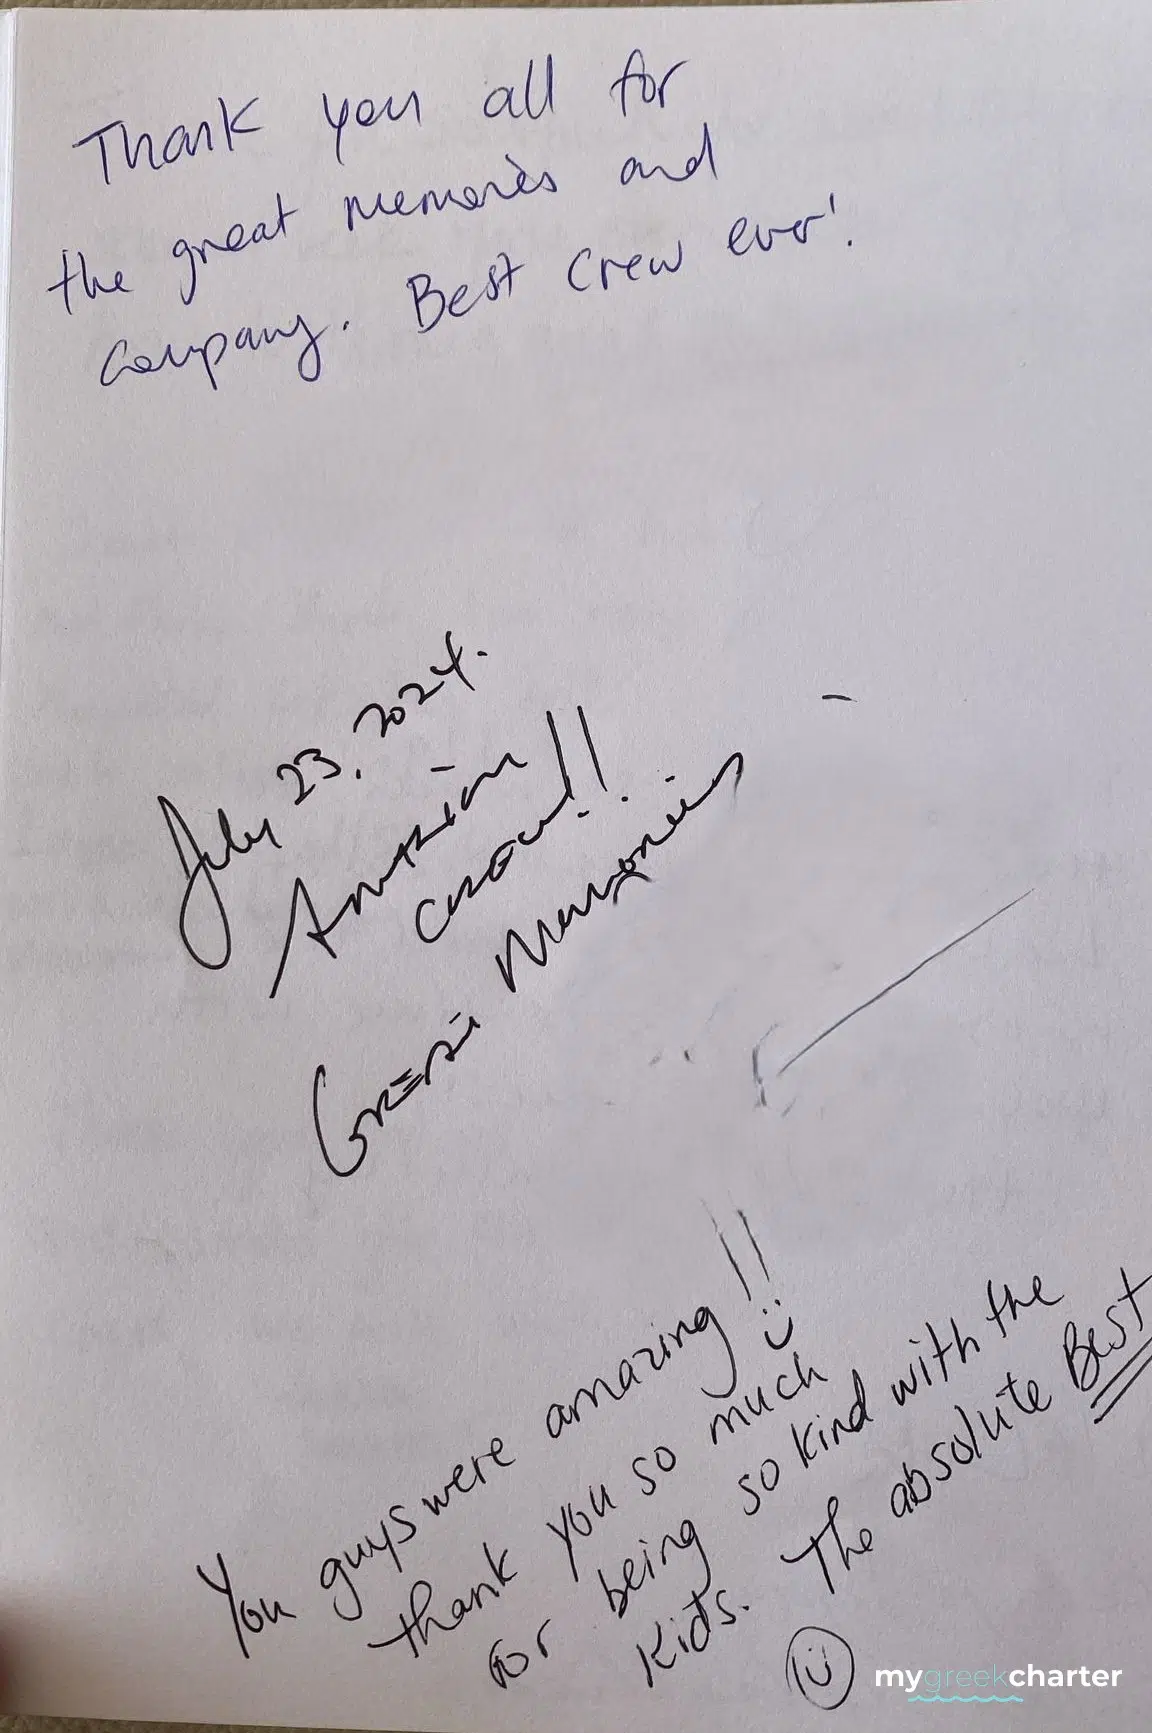 Thank you all for
the great memories and
company. Best crew ever!
July 23, 2024.
Amazing
crew!!
Great Memories
You guys were amazing!!
thank you so much
for being so kind with the
kids. The absolute Best
mygreekcharter